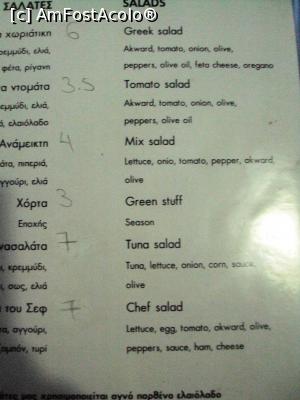 [c] AmFostAcolo®
ΣΑΛΑΤΕΣ SALADS
χωριάτικη 6 Greek salad
κρεμμύδι, ελιά, Akward, tomato, onion, olive,
φέτα, ρίγανη peppers, olive oil, feta cheese, oregano
ντομάτα 3.5 Tomato salad
κρεμμύδι, ελιά, Akward, tomato, onion, olive,
ελαιόλαδο peppers, olive oil
Ανάμεικτη 4 Mix salad
πιπεριά, Lettuce, onio, tomato, pepper, akward,
αγγούρι, ελιά olive
Χόρτα 3 Green stuff
Εποχής Season
7 Tuna salad
κρεμμύδι, Tuna, lettuce, onion, corn, sauce,
σως, ελιά olive
του Σεφ 7 Chef salad
αγγούρι, Lettuce, egg, tomato, akward, olive,
ζαμπόν, τυρί peppers, sauce, ham, cheese
μας χρησιμοποιείται αγνό παρθένο ελαιόλαδο